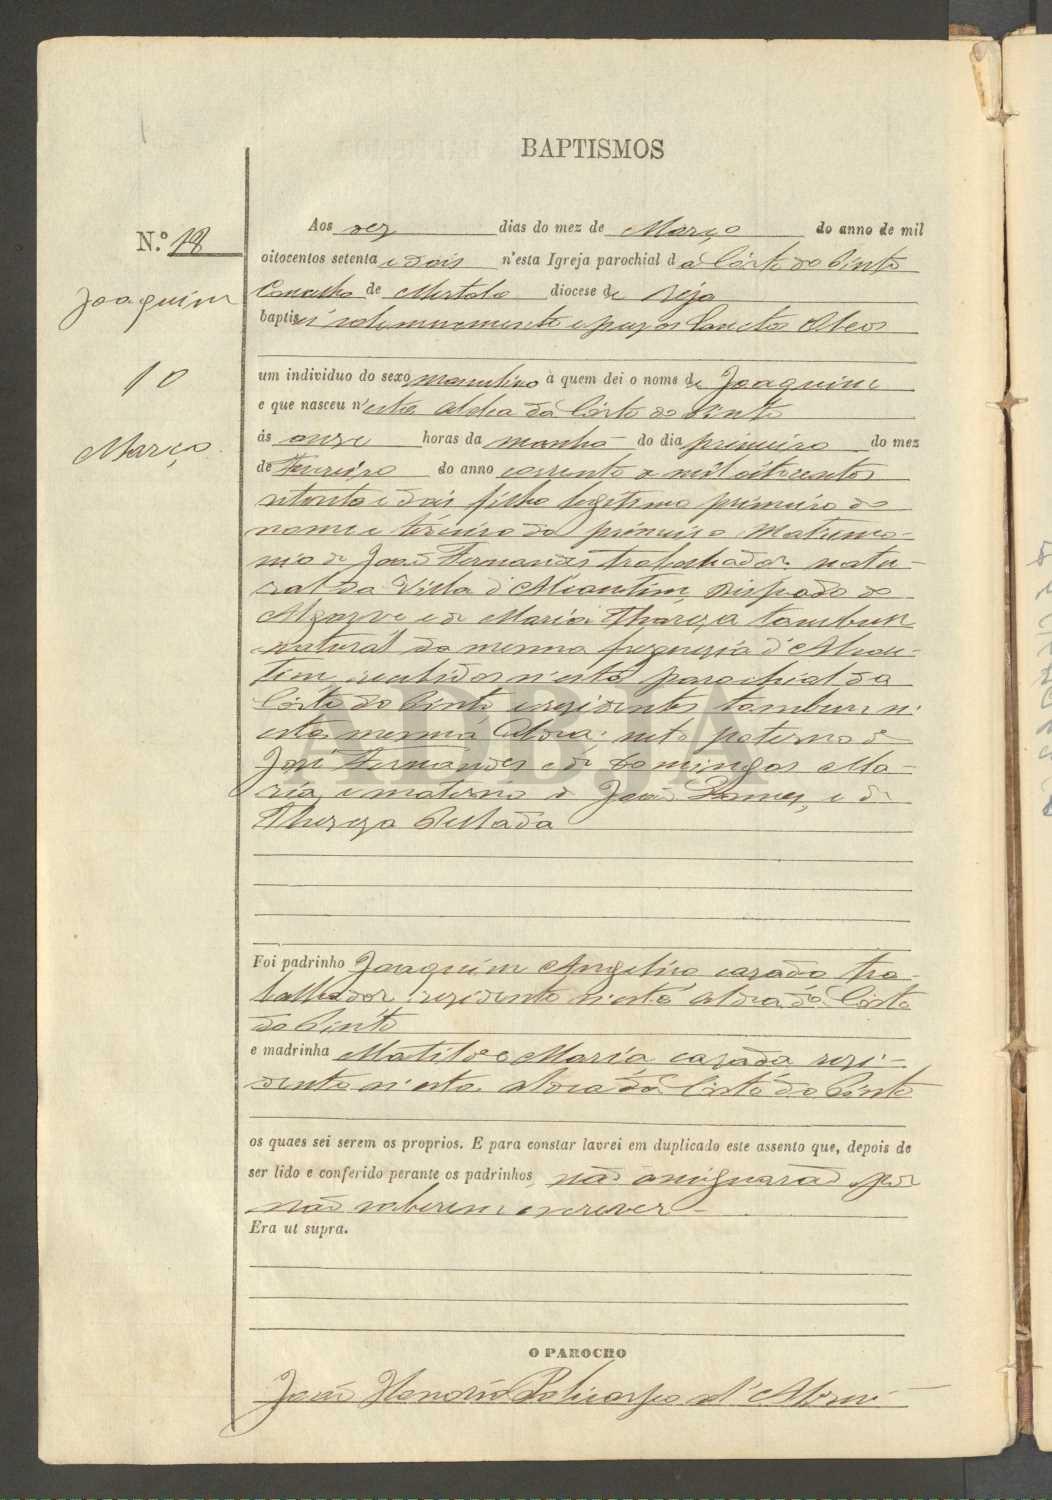 BAPTISMOS
N.º 18
Joaquim
10
Março
Aos dez dias do mez de Março do anno de mil
oitocentos setenta e dois n'esta Igreja parochial da Côrte do Pinto
Concelho de Mertola diocese de Beja
baptisei solemnemente e puz os Sanctos Oleos
um individuo do sexo masculino à quem dei o nome de Joaquim
e que nasceu n'esta Aldea da Côrte do Pinto
ás onze horas da manhã do dia primeiro do mez
de Fevreiro do anno corrente de mil oitocentos
setenta e dois filho legitimo primeiro do
nome e terceiro do primeiro Matrimo-
nio de João Fernandes trabalhador natu-
ral da Villa d'Alcoutim Bispado do
Algarve e de Maria Thereza tambem
natural da mesma freguezia d'Alcou-
tim recebidos n'esta parochial da
Côrte do Pinto e rezidentes tambem n'
esta mesma Aldea; neto paterno de
José Fernandes e de Domingas Ma-
ria, e materno de João Gomes, e de
Thereza
Foi padrinho Joaquim Angelino cazado tra-
balhador rezidente n'esta Aldea da Côrte
do Pinto
e madrinha Matilde Maria cazada rezi-
dente n'esta Aldea da Côrte do Pinto
os quaes sei serem os proprios. E para constar lavrei em duplicado este assento que, depois de
ser lido e conferido perante os padrinhos, não assignarão por
não saberem escrever
Era ut supra.
O PAROCHO
João Honorio Policarpo d'Abreu
ADBJA